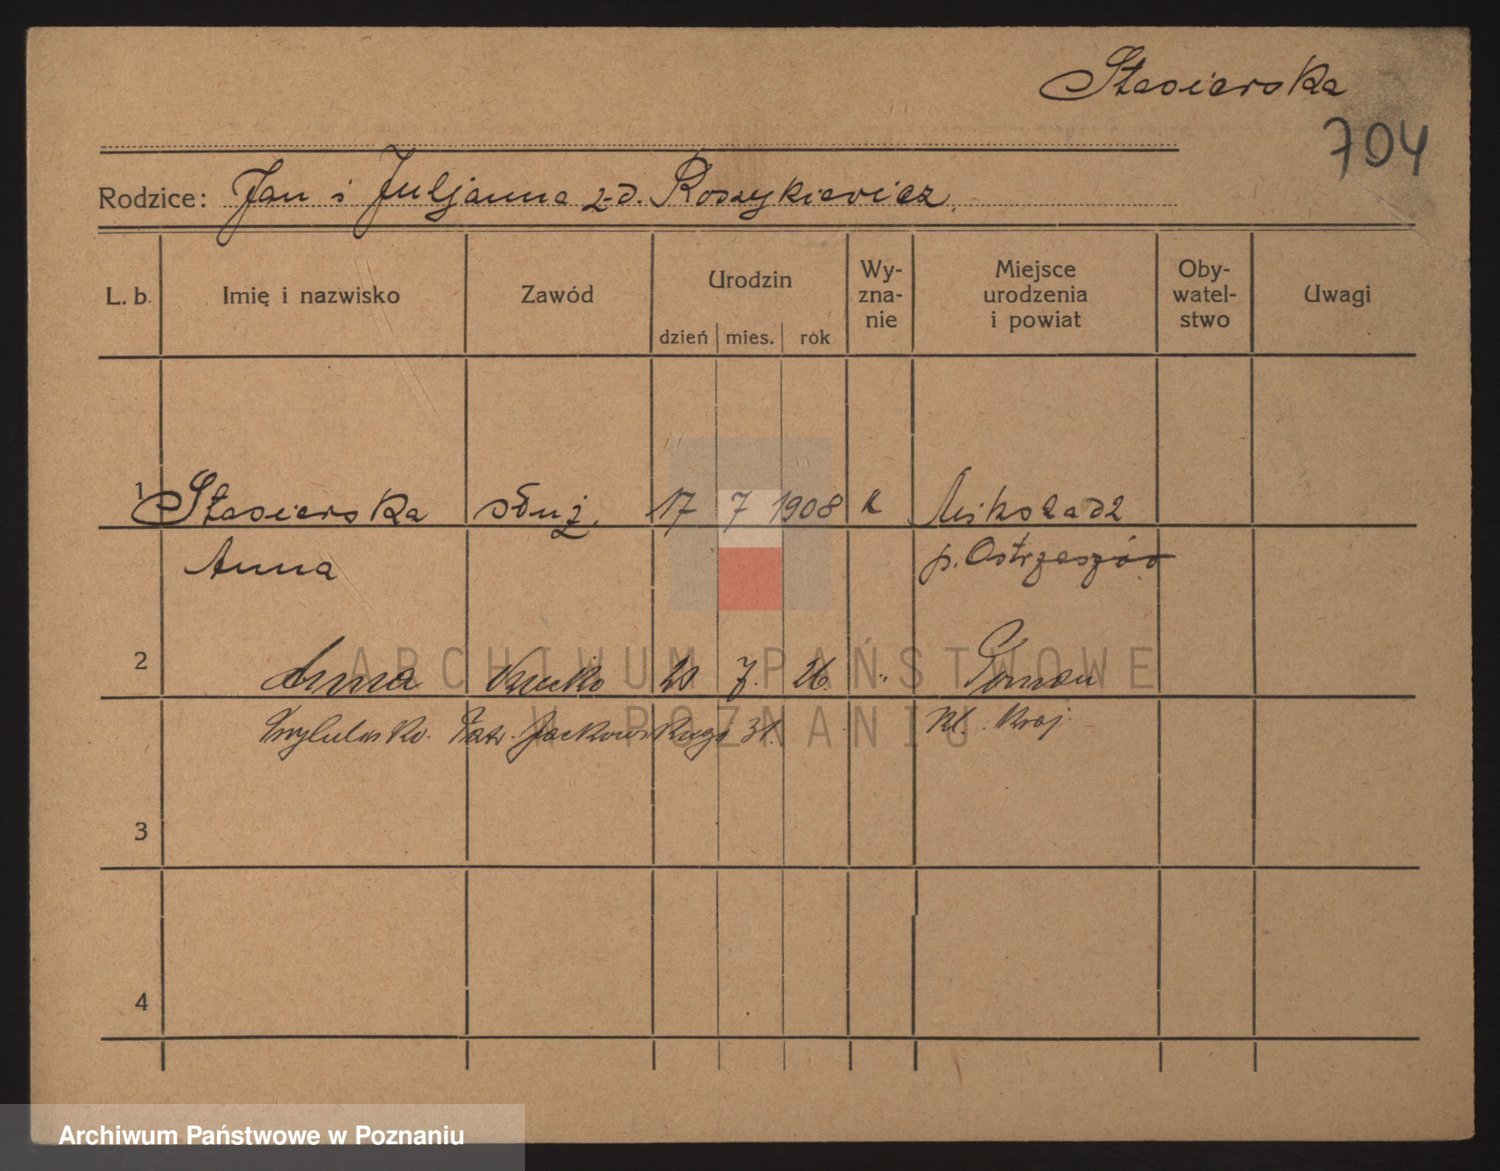 Stasierska
704
Rodzice: Jan i Juljanna z-d. Roszykiewicz.
L. b. Imię i nazwisko Zawód Urodzin dzień mies. rok Wy-zna-nie Miejsce urodzenia i powiat Oby-watel-stwo Uwagi
1 Stasierska służ. 17 7 1908 k
Anna p. Ostrzeszów
2 Anna 7. 26 "
Jackowskiego 31.
3
4
ARCHIWUM PAŃSTWOWE
W POZNANIU
Archiwum Państwowe w Poznaniu